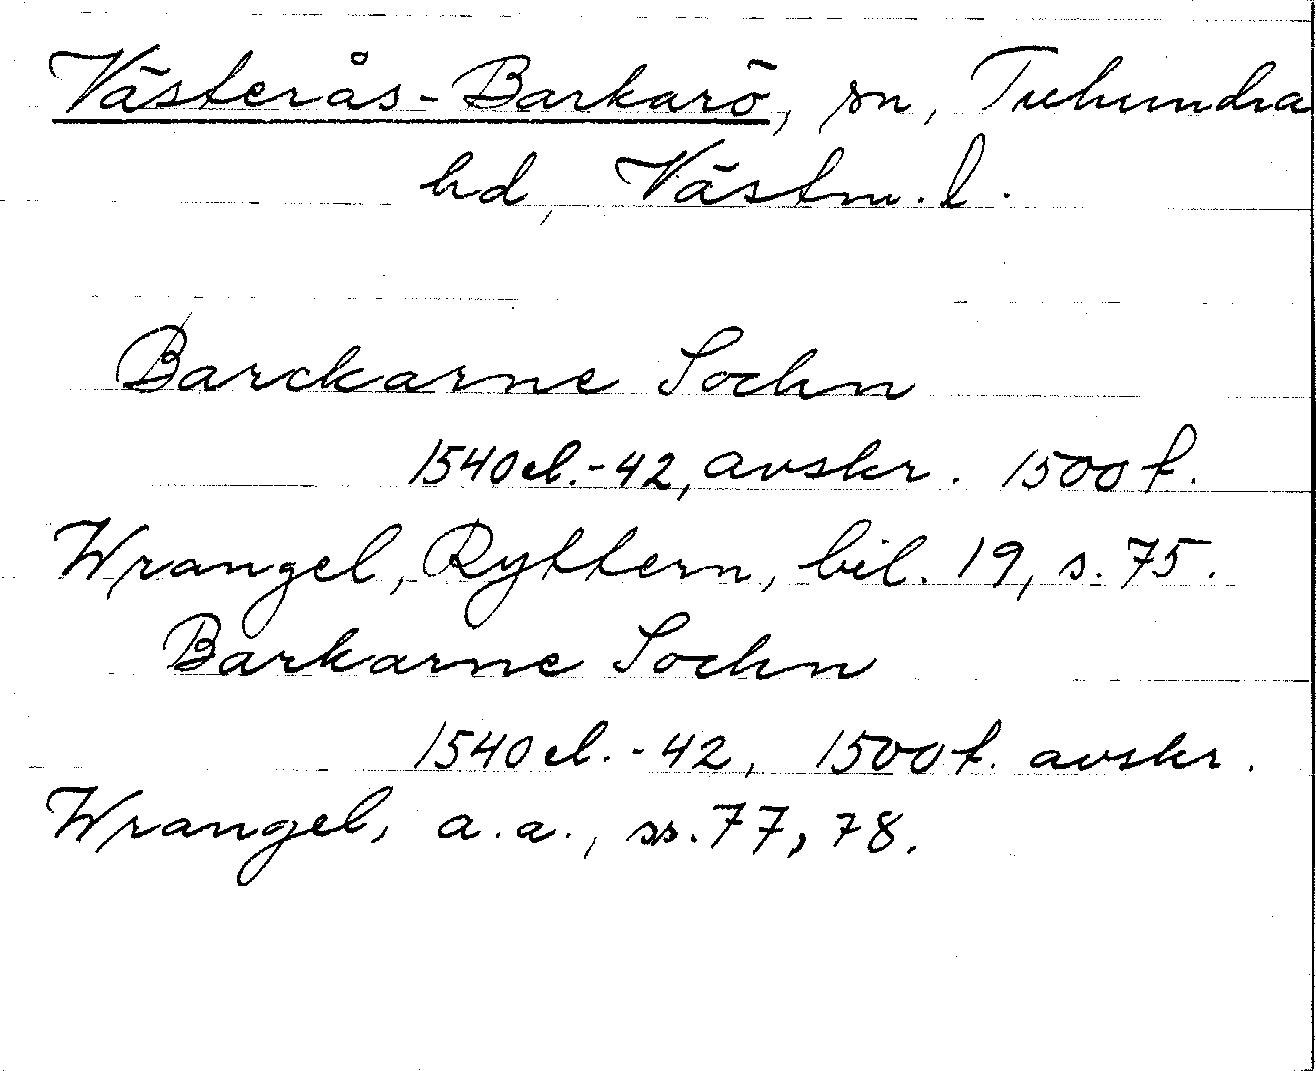 Västerås-Barkarö, sn, Tuhundra
hd, Västm. l.
Barckarne Sochn
1540 el.-42, avskr. 1500 t.
Wrangel, Ryttern, bil. 19, s. 75.
Barkarne Sochn
1540 el.-42, 1500 t. avskr.
Wrangel, a.a., ss. 77, 78.